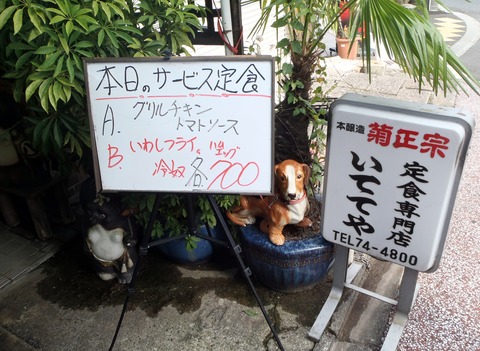 本日のサービス定食
A. グリルチキン
トマトソース
B. いわしフライ、ハムエッグ
冷奴 各700
本醸造 菊正宗
定食専門店
いててや
TEL74-4800